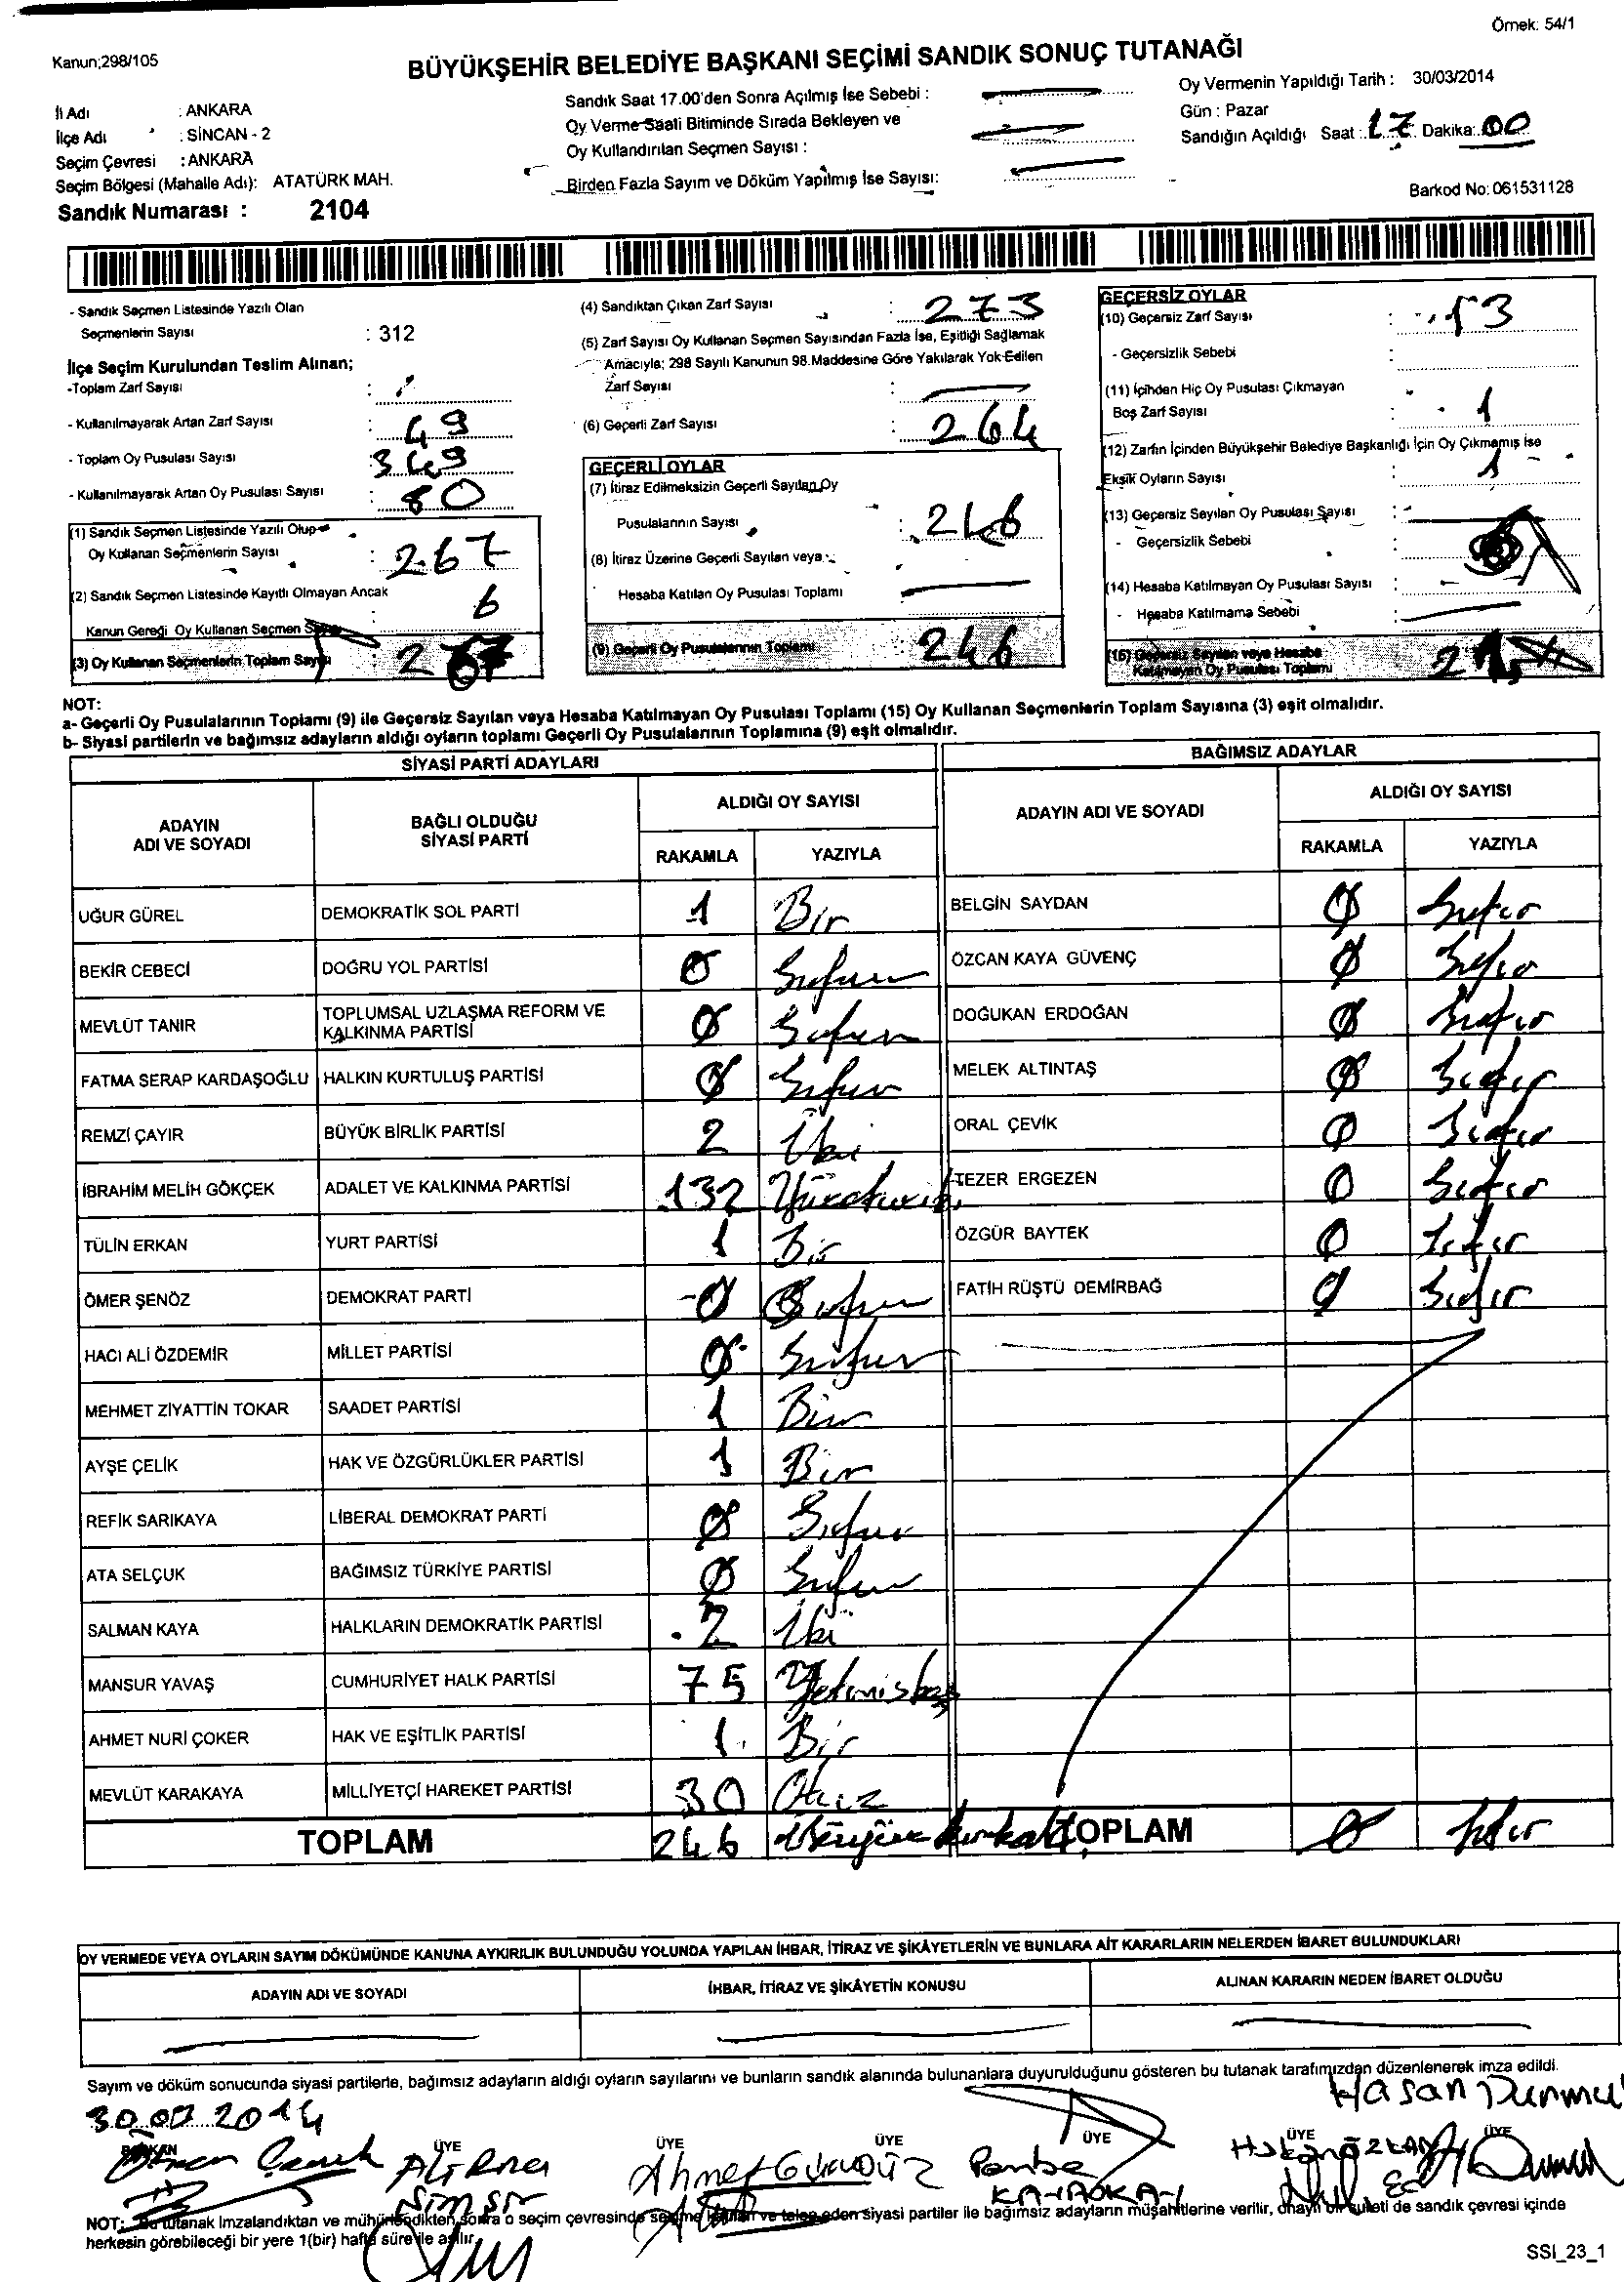 Örnek: 54/1
Kanun;298/105
BÜYÜKŞEHİR BELEDİYE BAŞKANI SEÇİMİ SANDIK SONUÇ TUTANAĞI
İl Adı : ANKARA
İlçe Adı : SİNCAN - 2
Seçim Çevresi : ANKARA
Seçim Bölgesi (Mahalle Adı): ATATÜRK MAH.
Sandık Numarası : 2104
Sandık Saat 17.00'den Sonra Açılmış İse Sebebi :
Oy Verme Saati Bitiminde Sırada Bekleyen ve
Oy Kullandırılan Seçmen Sayısı :
Birden Fazla Sayım ve Döküm Yapılmış İse Sayısı:
Oy Vermenin Yapıldığı Tarih : 30/03/2014
Gün : Pazar
Sandığın Açıldığı Saat : 17 Dakika: 00
Barkod No: 061531128
- Sandık Seçmen Listesinde Yazılı Olan
Seçmenlerin Sayısı : 312
İlçe Seçim Kurulundan Teslim Alınan;
-Toplam Zarf Sayısı :
- Kullanılmayarak Artan Zarf Sayısı : 49
- Toplam Oy Pusulası Sayısı : 349
- Kullanılmayarak Artan Oy Pusulası Sayısı : 80
(1) Sandık Seçmen Listesinde Yazılı Olup
Oy Kullanan Seçmenlerin Sayısı : 267
(2) Sandık Seçmen Listesinde Kayıtlı Olmayan Ancak
Kanun Gereği Oy Kullanan Seçmen 6
(3) Oy Kullanan Seçmenlerin Toplam Sayısı :
(4) Sandıktan Çıkan Zarf Sayısı : 273
(5) Zarf Sayısı Oy Kullanan Seçmen Sayısından Fazla İse, Eşitliği Sağlamak
Amacıyla; 298 Sayılı Kanunun 98.Maddesine Göre Yakılarak Yok Edilen
Zarf Sayısı :
(6) Geçerli Zarf Sayısı : 264
GEÇERLİ OYLAR
(7) İtiraz Edilmeksizin Geçerli Sayılan Oy
Pusulalarının Sayısı : 246
(8) İtiraz Üzerine Geçerli Sayılan veya
Hesaba Katılan Oy Pusulası Toplamı
(9) Geçerli Oy Pusulalarının Toplamı 246
GEÇERSİZ OYLAR
(10) Geçersiz Zarf Sayısı : 13
- Geçersizlik Sebebi :
(11) İçinden Hiç Oy Pusulası Çıkmayan
Boş Zarf Sayısı : 1
(12) Zarfın İçinden Büyükşehir Belediye Başkanlığı İçin Oy Çıkmamış İse
Eksik Oyların Sayısı 1
(13) Geçersiz Sayılan Oy Pusulası Sayısı :
- Geçersizlik Sebebi :
(14) Hesaba Katılmayan Oy Pusulası Sayısı :
- Hesaba Katılmama Sebebi :
(15) Geçersiz Sayılan veya Hesaba
Katılmayan Oy Pusulası Toplamı
NOT:
a- Geçerli Oy Pusulalarının Toplamı (9) ile Geçersiz Sayılan veya Hesaba Katılmayan Oy Pusulası Toplamı (15) Oy Kullanan Seçmenlerin Toplam Sayısına (3) eşit olmalıdır.
b- Siyasi partilerin ve bağımsız adayların aldığı oyların toplamı Geçerli Oy Pusulalarının Toplamına (9) eşit olmalıdır.
SİYASİ PARTİ ADAYLARI
ADAYIN ADI VE SOYADI BAĞLI OLDUĞU SİYASİ PARTİ ALDIĞI OY SAYISI
RAKAMLA YAZIYLA
UĞUR GÜREL DEMOKRATİK SOL PARTİ 1 Bir
BEKİR CEBECİ DOĞRU YOL PARTİSİ 0 Sıfır
MEVLÜT TANIR TOPLUMSAL UZLAŞMA REFORM VE KALKINMA PARTİSİ 0 Sıfır
FATMA SERAP KARDAŞOĞLU HALKIN KURTULUŞ PARTİSİ 0 Sıfır
REMZİ ÇAYIR BÜYÜK BİRLİK PARTİSİ 2 İki
İBRAHİM MELİH GÖKÇEK ADALET VE KALKINMA PARTİSİ 132
TÜLİN ERKAN YURT PARTİSİ 1 Bir
ÖMER ŞENÖZ DEMOKRAT PARTİ 0 Sıfır
HACI ALİ ÖZDEMİR MİLLET PARTİSİ 0 Sıfır
MEHMET ZİYATTİN TOKAR SAADET PARTİSİ 1 Bir
AYŞE ÇELİK HAK VE ÖZGÜRLÜKLER PARTİSİ 1 Bir
REFİK SARIKAYA LİBERAL DEMOKRAT PARTİ 0 Sıfır
ATA SELÇUK BAĞIMSIZ TÜRKİYE PARTİSİ 0 Sıfır
SALMAN KAYA HALKLARIN DEMOKRATİK PARTİSİ 2 İki
MANSUR YAVAŞ CUMHURİYET HALK PARTİSİ 75 Yetmişbeş
AHMET NURİ ÇOKER HAK VE EŞİTLİK PARTİSİ 1 Bir
MEVLÜT KARAKAYA MİLLİYETÇİ HAREKET PARTİSİ 30 Otuz
TOPLAM 246 İkiyüz kırkaltı
BAĞIMSIZ ADAYLAR
ADAYIN ADI VE SOYADI ALDIĞI OY SAYISI
RAKAMLA YAZIYLA
BELGİN SAYDAN 0 Sıfır
ÖZCAN KAYA GÜVENÇ 0 Sıfır
DOĞUKAN ERDOĞAN 0 Sıfır
MELEK ALTINTAŞ 0 Sıfır
ORAL ÇEVİK 0 Sıfır
TEZER ERGEZEN 0 Sıfır
ÖZGÜR BAYTEK 0 Sıfır
FATİH RÜŞTÜ DEMİRBAĞ 0 Sıfır
TOPLAM 0 Sıfır
OY VERMEDE VEYA OYLARIN SAYIM DÖKÜMÜNDE KANUNA AYKIRILIK BULUNDUĞU YOLUNDA YAPILAN İHBAR, İTİRAZ VE ŞİKÂYETLERİN VE BUNLARA AİT KARARLARIN NELERDEN İBARET BULUNDUKLARI
ADAYIN ADI VE SOYADI İHBAR, İTİRAZ VE ŞİKÂYETİN KONUSU ALINAN KARARIN NEDEN İBARET OLDUĞU
Sayım ve döküm sonucunda siyasi partilerle, bağımsız adayların aldığı oyların sayılarını ve bunların sandık alanında bulunanlara duyurulduğunu gösteren bu tutanak tarafımızdan düzenlenerek imza edildi.
30.03.2014 Hasan Durmu
BAŞKAN ÜYE ÜYE ÜYE ÜYE ÜYE ÜYE
Ahmet GÜNDÜZ Pembe
NOT: Bu tutanak İmzalandıktan ve mühürlendikten sonra o seçim çevresinde seçime katılan ve talep eden siyasi partiler ile bağımsız adayların müşahitlerine verilir, onaylı bir sureti de sandık çevresi içinde
herkesin görebileceği bir yere 1(bir) hafta süre ile asılır.
SSI_23_1